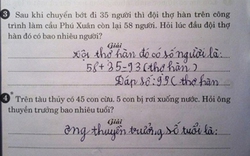 3 Sau khi chuyển bớt đi 35 người thì đội thợ hàn trên công
trình làm cầu Phú Xuân còn lại 58 người. Hỏi lúc đầu đội thợ
hàn đó có bao nhiêu người?
Giải
Đội thợ hàn đó có số người là:
58+35=93 (thợ hàn)
Đáp số: 93 thợ hàn
4 Trên tàu thủy có 45 con cừu. 5 con bị rơi xuống nước. Hỏi ông
thuyền trưởng bao nhiêu tuổi?
Giải
Ông thuyền trưởng số tuổi là: